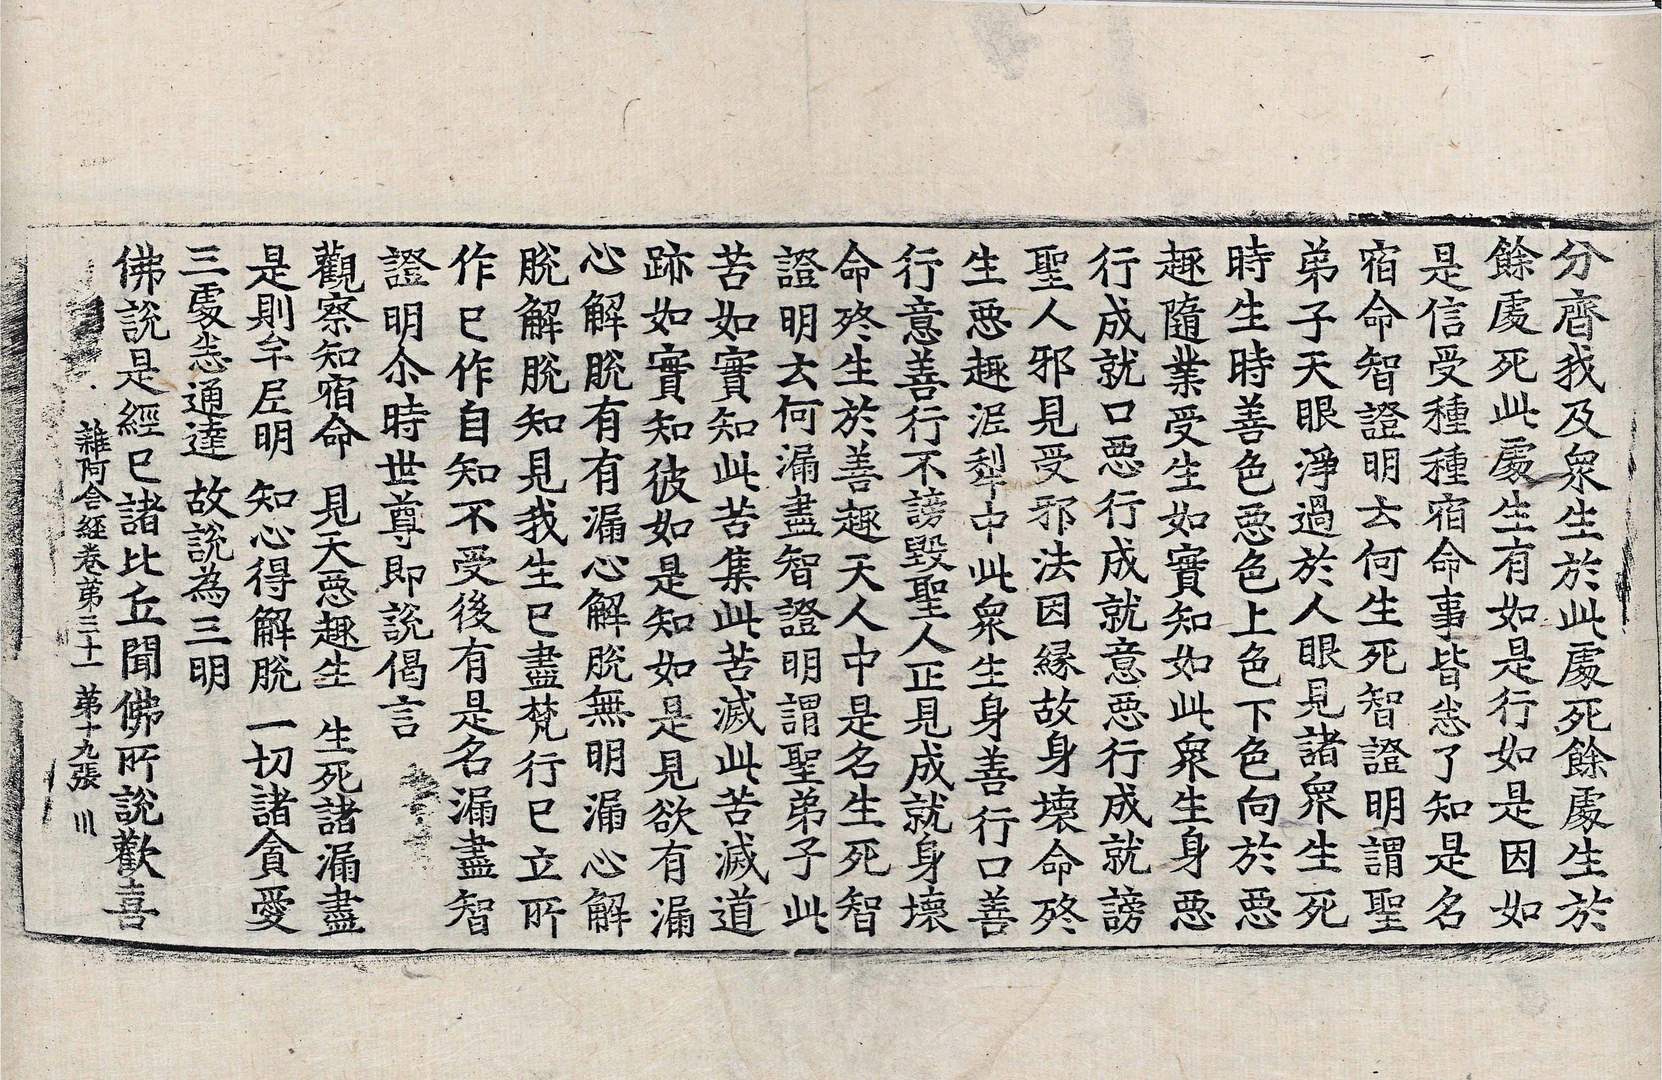 分齊我及衆生於此處死餘處生於
餘處死此處生有如是行如是因如
是信受種種宿命事皆悉了知是名
宿命智證明云何生死智證明謂聖
弟子天眼淨過於人眼見諸衆生死
時生時善色惡色上色下色向於惡
趣隨業受生如實知如此衆生身惡
行成就口惡行成就意惡行成就謗
聖人邪見受邪法因緣故身壞命終
生惡趣泥犁中此衆生身善行口善
行意善行不謗毀聖人正見成就身壞
命終生於善趣天人中是名生死智
證明云何漏盡智證明謂聖弟子此
苦如實知此苦集此苦滅此苦滅道
跡如實知彼如是知如是見欲有漏
心解脫有有漏心解脫無明漏心解
脫解脫知見我生已盡梵行已立所
作已作自知不受後有是名漏盡智
證明尒時世尊即說偈言
觀察知宿命 見天惡趣生 生死諸漏盡
是則牟尼明 知心得解脫 一切諸貪愛
三處悉通達 故說為三明
佛說是經已諸比丘聞佛所說歡喜
雜阿含經卷第三十一 第十九張 川